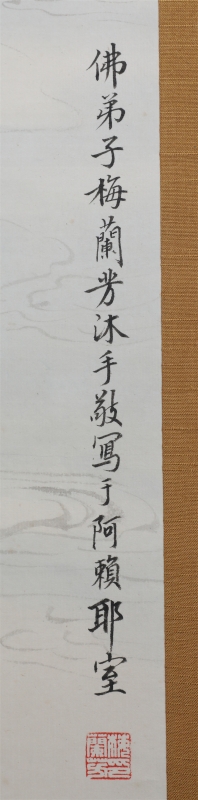 佛弟子梅蘭芳沐手敬寫于阿賴耶室
梅蘭芳